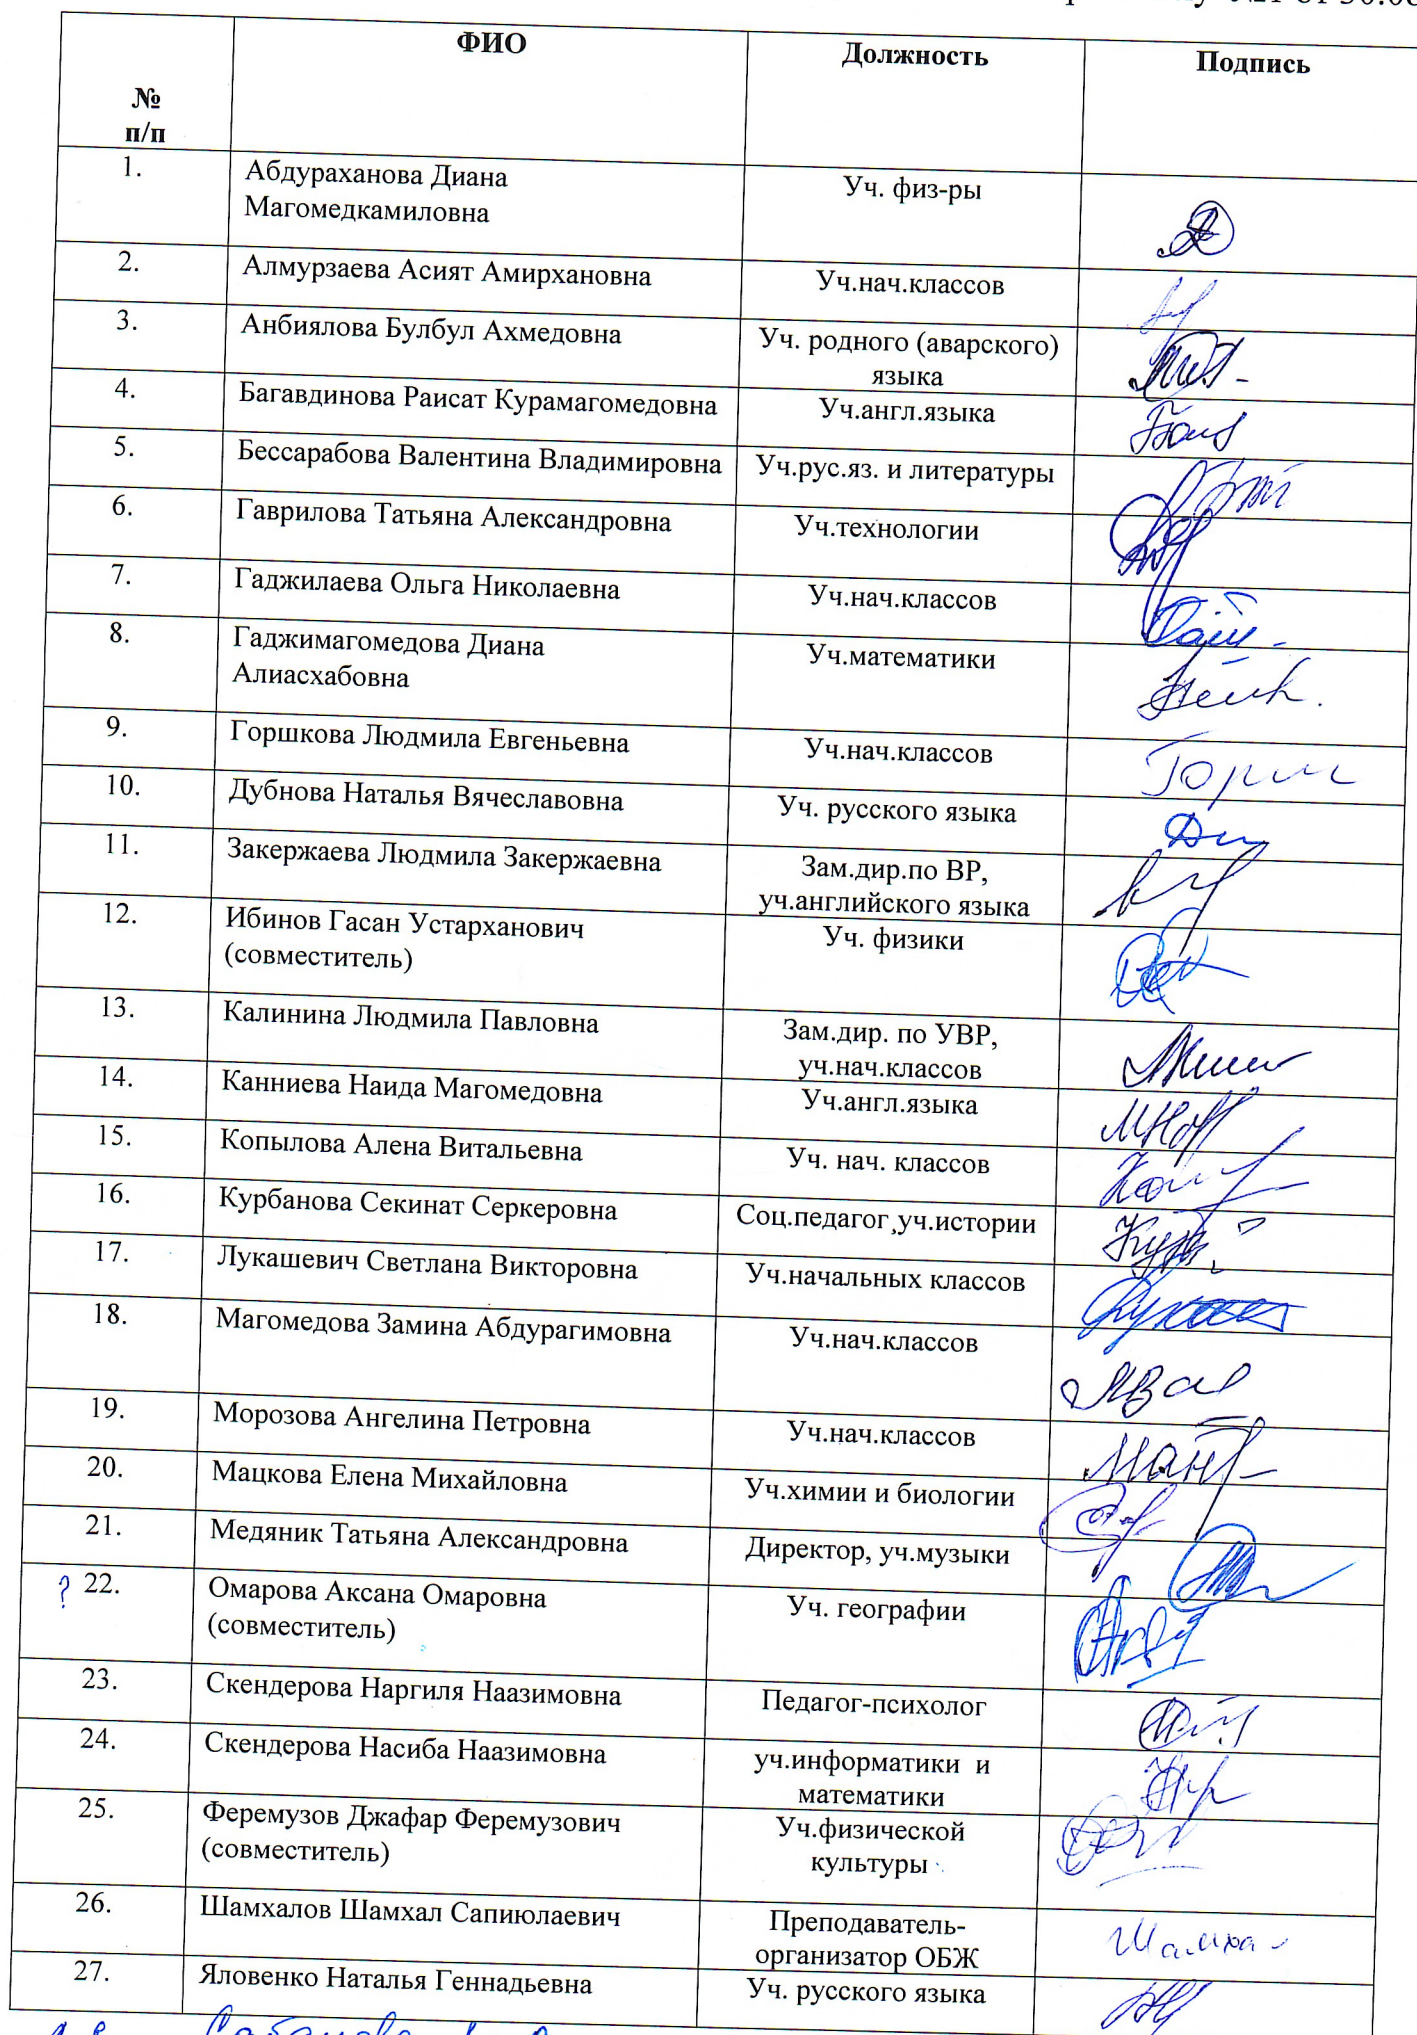 №1 от 30.08
№
п/п
ФИО
Должность
Подпись
1.
Абдураханова Диана
Магомедкамиловна
Уч. физ-ры
2.
Алмурзаева Асият Амирхановна
Уч.нач.классов
3.
Анбиялова Булбул Ахмедовна
Уч. родного (аварского)
языка
4.
Багавдинова Раисат Курамагомедовна
Уч.англ.языка
5.
Бессарабова Валентина Владимировна
Уч.рус.яз. и литературы
6.
Гаврилова Татьяна Александровна
Уч.технологии
7.
Гаджилаева Ольга Николаевна
Уч.нач.классов
8.
Гаджимагомедова Диана
Алиасхабовна
Уч.математики
9.
Горшкова Людмила Евгеньевна
Уч.нач.классов
10.
Дубнова Наталья Вячеславовна
Уч. русского языка
11.
Закержаева Людмила Закержаевна
Зам.дир.по ВР,
уч.английского языка
12.
Ибинов Гасан Устарханович
(совместитель)
Уч. физики
13.
Калинина Людмила Павловна
Зам.дир. по УВР,
уч.нач.классов
14.
Канниева Наида Магомедовна
Уч.англ.языка
15.
Копылова Алена Витальевна
Уч. нач. классов
16.
Курбанова Секинат Серкеровна
Соц.педагог,уч.истории
17.
Лукашевич Светлана Викторовна
Уч.начальных классов
18.
Магомедова Замина Абдурагимовна
Уч.нач.классов
19.
Морозова Ангелина Петровна
Уч.нач.классов
20.
Мацкова Елена Михайловна
Уч.химии и биологии
21.
Медяник Татьяна Александровна
Директор, уч.музыки
? 22.
Омарова Аксана Омаровна
(совместитель)
Уч. географии
23.
Скендерова Наргиля Наазимовна
Педагог-психолог
24.
Скендерова Насиба Наазимовна
уч.информатики и
математики
25.
Феремузов Джафар Феремузович
(совместитель)
Уч.физической
культуры
26.
Шамхалов Шамхал Сапиюлаевич
Преподаватель-
организатор ОБЖ
27.
Яловенко Наталья Геннадьевна
Уч. русского языка